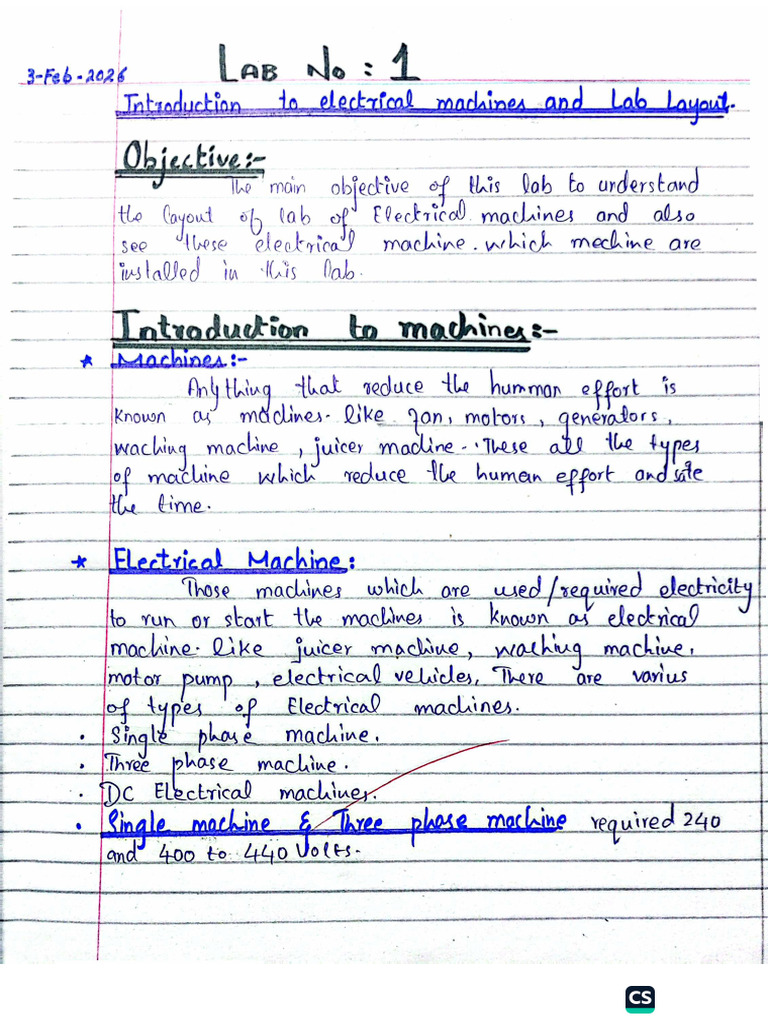 Lab No : 1
3-Feb-2026
Introduction to electrical machines and Lab Layout.
Objective:-
The main objective of this lab to understand
the layout of lab of Electrical machines and also
see these electrical machine. which mechine are
installed in this lab.
Introduction to machines:-
* Machines:-
Anything that reduce the humman effort is
known as machines. like fan, motors, generators,
waching machine, juicer machine. These all the types
of machine which reduce the human effort and safe
the time.
* Electrical Machine:
Those machines which are used/required electricity
to run or start the machines is known as electrical
machine. like juicer machine, waching machine,
motor pump, electrical vehicles, There are varius
of types of Electrical machines.
. Single phase machine.
. Three phase machine.
. DC Electrical machines.
. Single machine & Three phase machine required 240
and 400 to 440 Volts.
CS